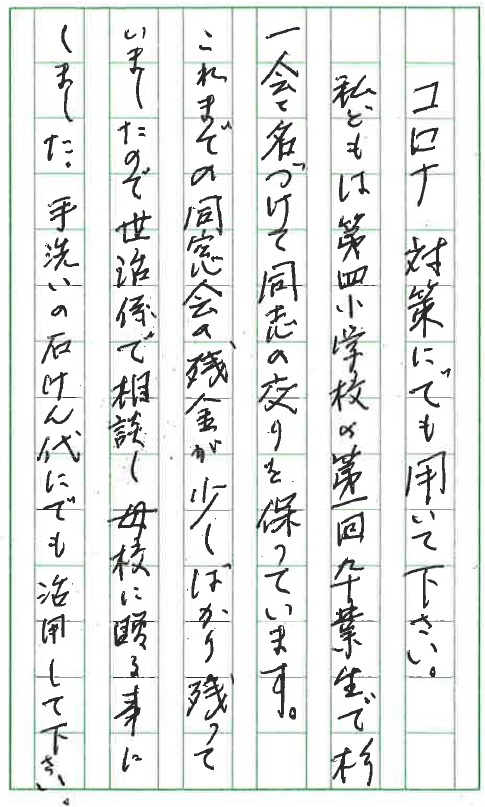 コロナ 対策にでも用いて下さい。
私どもは第四小学校の第一回卒業生で杉
一会と名づけて同志の交りを保っています。
これまでの同窓会の残金が少しばかり残って
いましたので世話係で相談し母校に贈る事に
しました。手洗いの石けん代にでも活用して下さい。